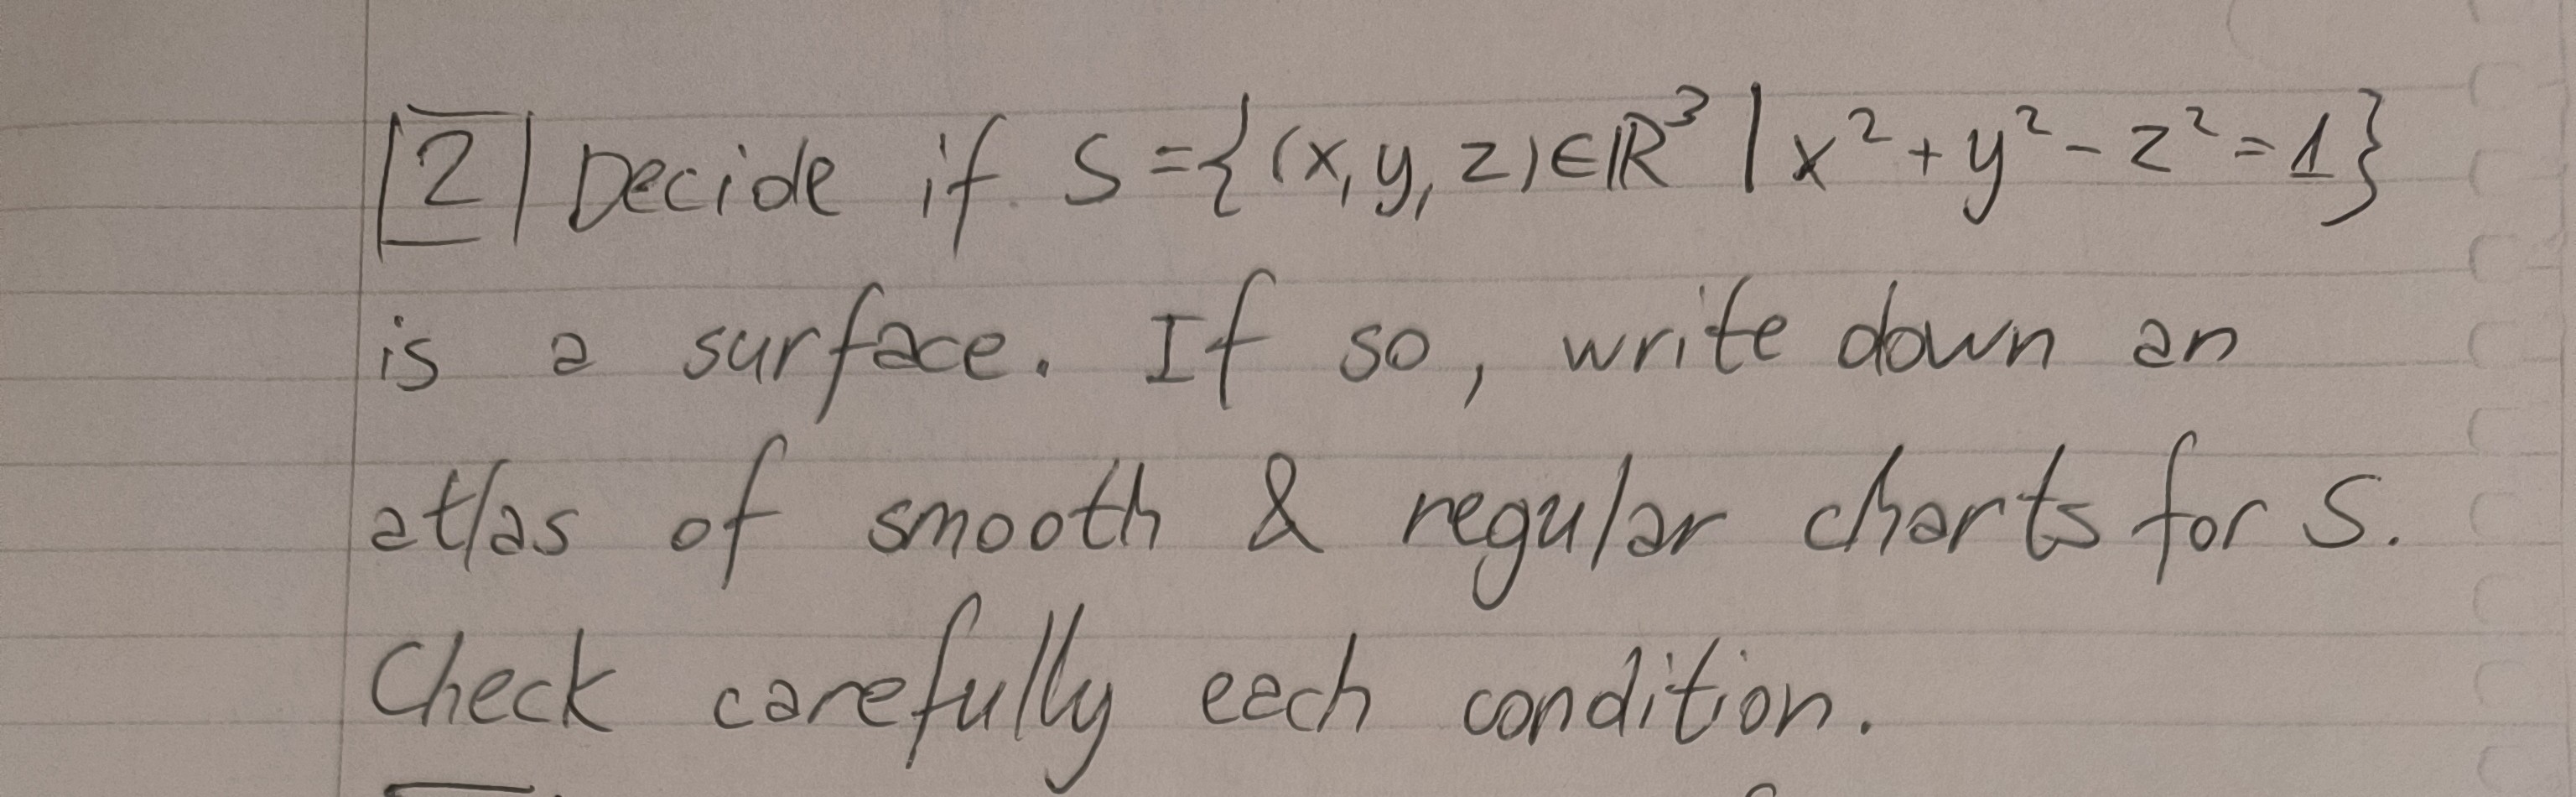 2 Decide if S = {(x, y, z) ∈ ℝ³ | x² + y² - z² = 1}
is a surface. If so, write down an
atlas of smooth & regular charts for S.
Check carefully each condition.